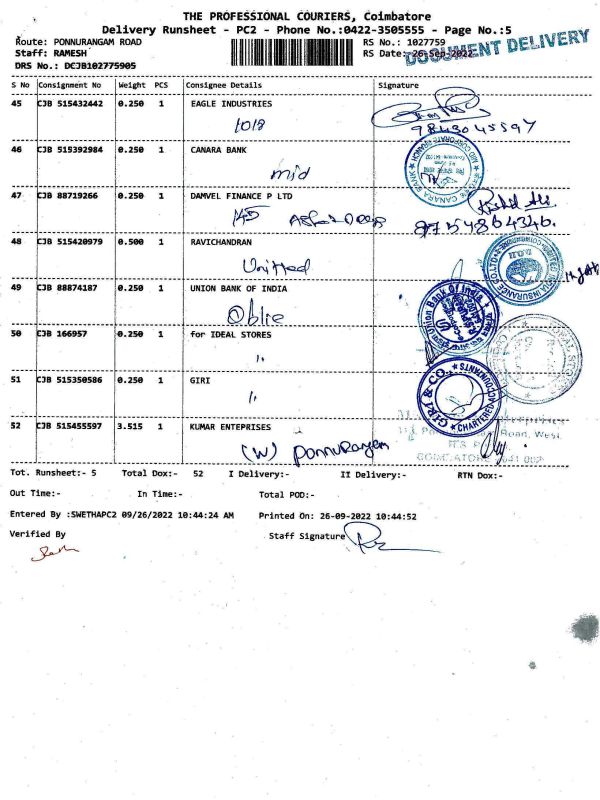 THE PROFESSIONAL COURIERS, Coimbatore
Delivery Runsheet - PC2 - Phone No.:0422-3505555 - Page No.:5
Route: PONNURANGAM ROAD
RS No.: 1027759
Staff: RAMESH
RS Date: 26-Sep-2022
DOCUMENT DELIVERY
DRS No.: DCJB102775905
S No Consignment No Weight PCS Consignee Details Signature
45 CJB 515432442 0.250 1 EAGLE INDUSTRIES
1018
9843045597
46 CJB 515392984 0.250 1 CANARA BANK
mid
CANARA BANK
47 CJB 88719266 0.250 1 DAMVEL FINANCE P LTD
145
8754864346.
48 CJB 515420979 0.500 1 RAVICHANDRAN
United
49 CJB 88874187 0.250 1 UNION BANK OF INDIA
Oblie
Union Bank Of India
50 CJB 166957 0.250 1 for IDEAL STORES
IDEAL STORES
51 CJB 515350586 0.250 1 GIRI
GIRI & CO.
CHARTERED ACCOUNTANTS
52 CJB 515455597 3.515 1 KUMAR ENTEPRISES
(W) Ponnurangam
Road, West,
COIMBATORE - 641 002
Tot. Runsheet:- 5 Total Dox:- 52 I Delivery:- II Delivery:- RTN Dox:-
Out Time:- In Time:- Total POD:-
Entered By :SWETHAPC2 09/26/2022 10:44:24 AM Printed On: 26-09-2022 10:44:52
Verified By Staff Signature